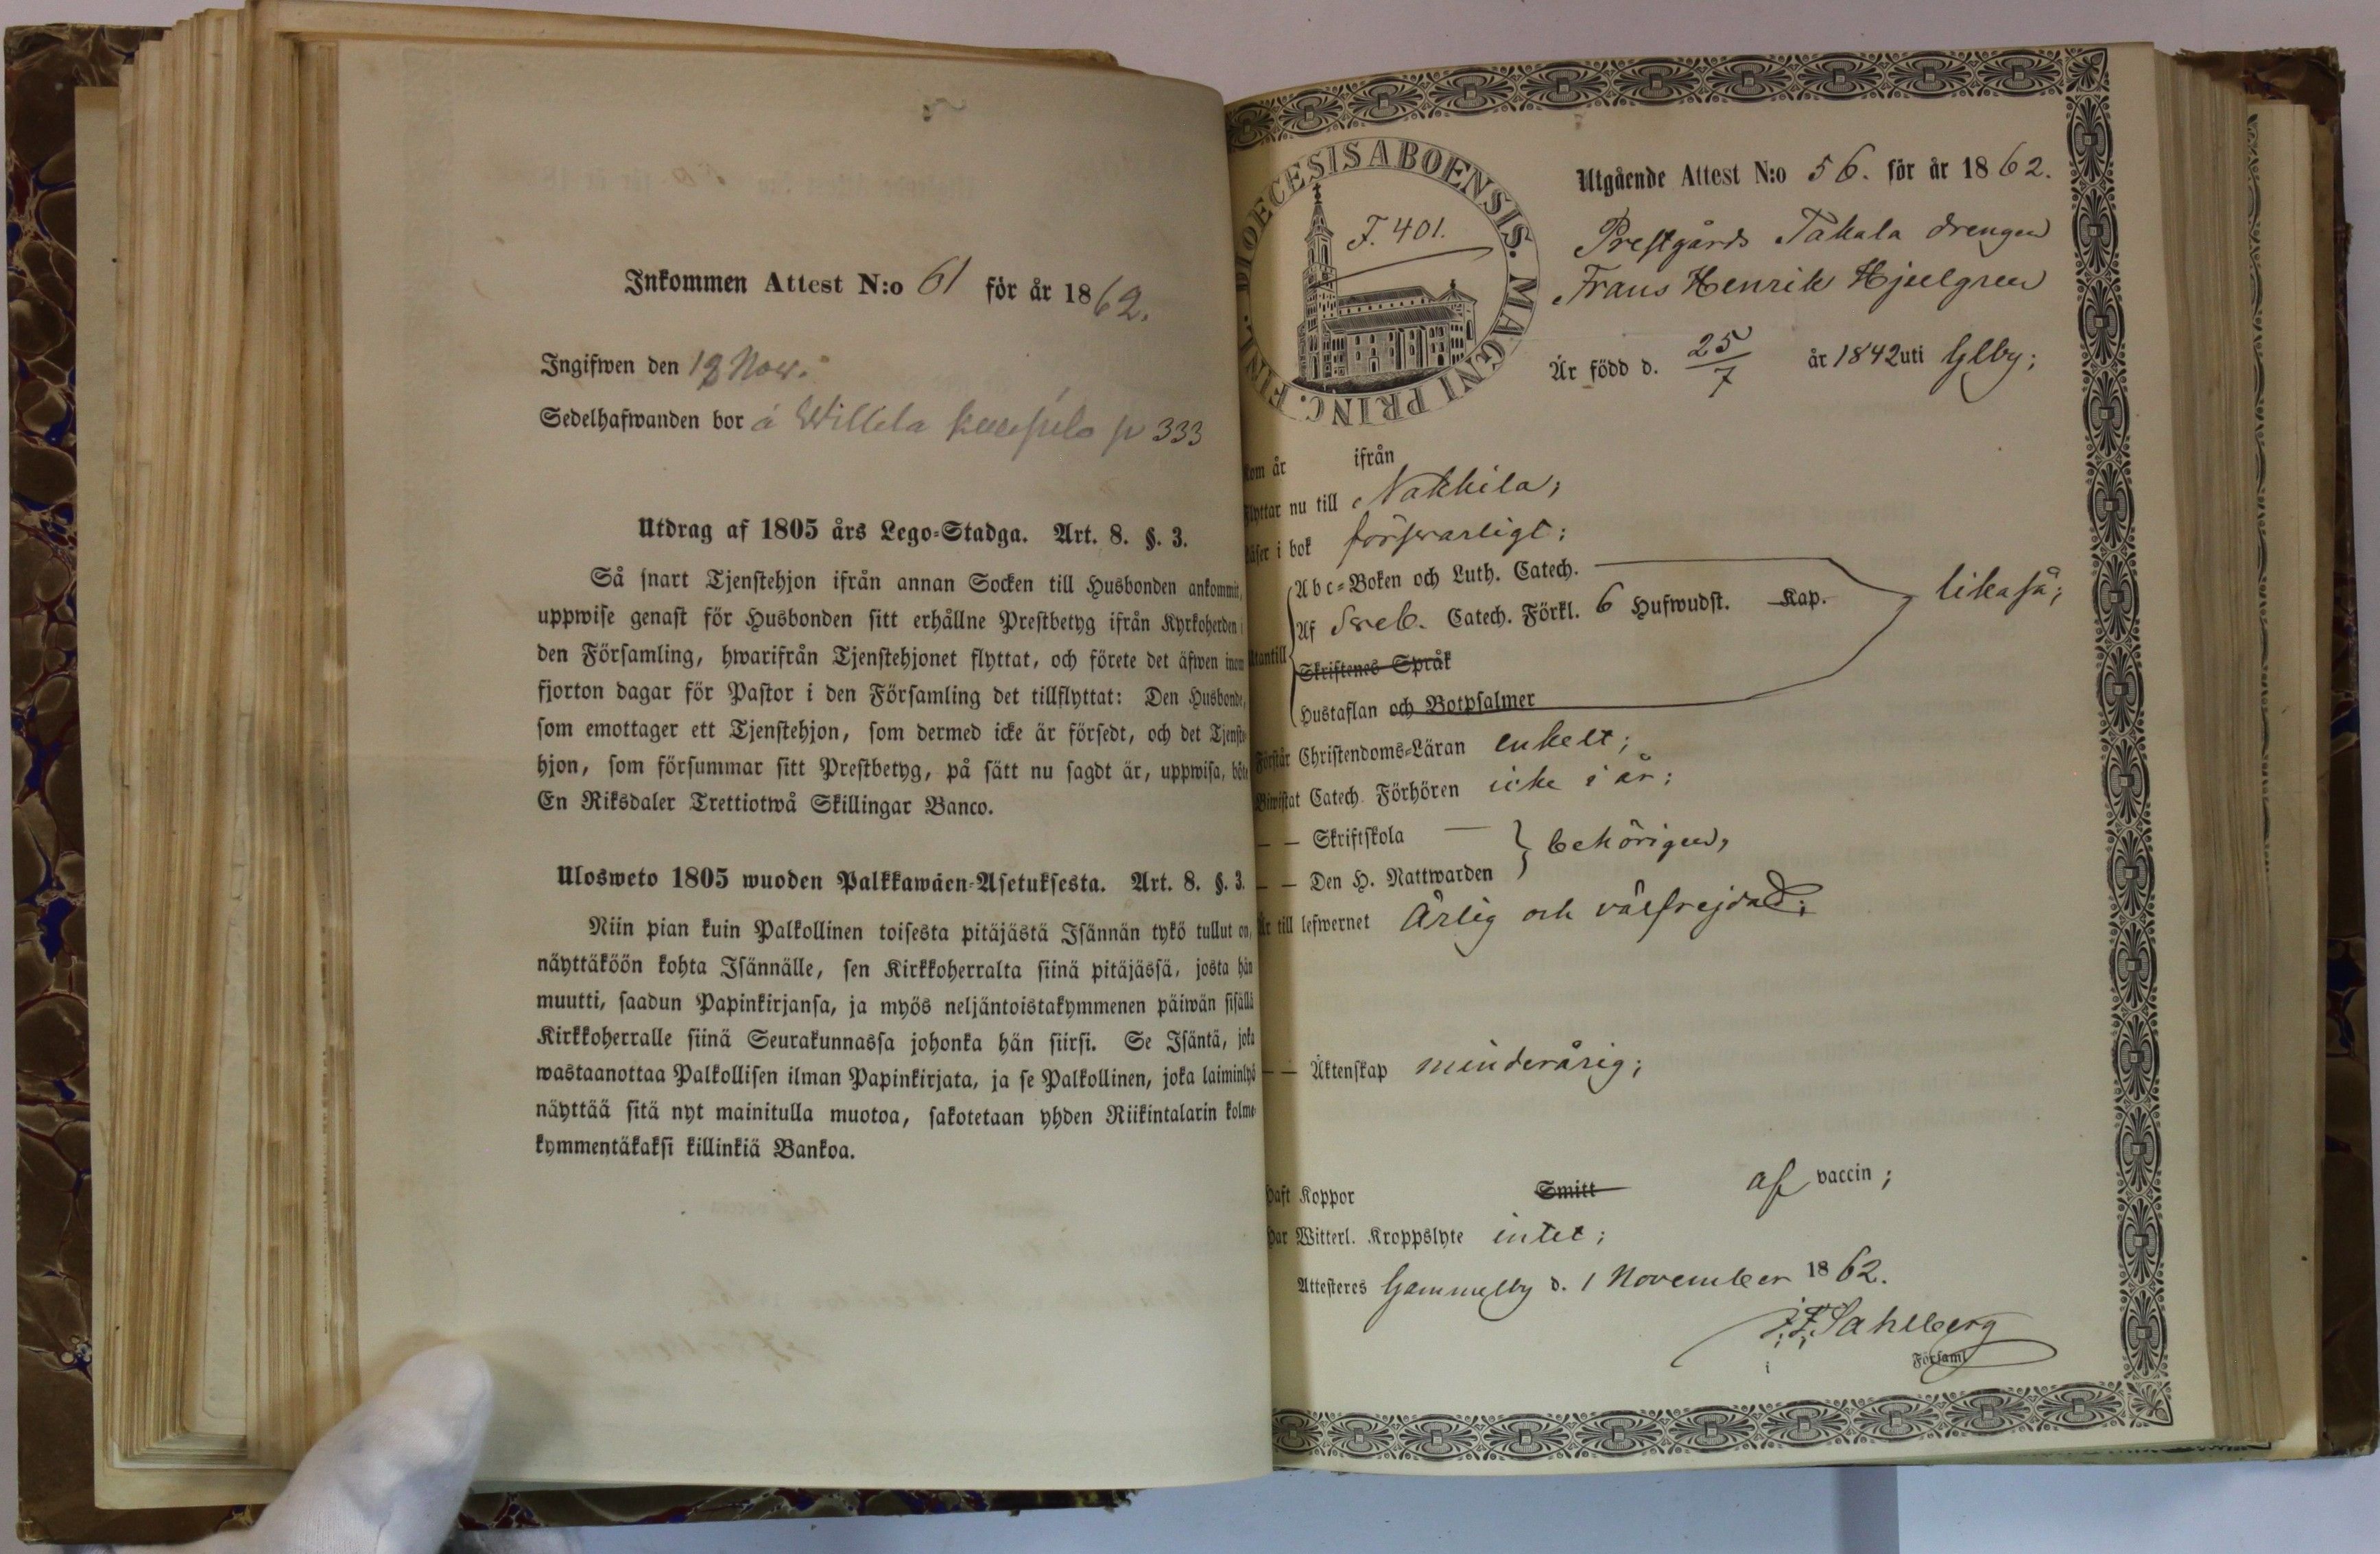 Inkommen Attest N:o 61 för år 1862.
Ingifwen den 12 Nov.
Sedelhafwanden bor å Willila p 333
Utdrag af 1805 års Lego-Stadga. Art. 8. §. 3.
Så snart Tjenstehjon ifrån annan Socken till Husbonden ankommit,
uppwise genast för Husbonden sitt erhållne Prestbetyg ifrån Kyrkoherden i
den Församling, hwarifrån Tjenstehjonet flyttat, och förete det äfwen inom
fjorton dagar för Pastor i den Församling det tillflyttat: Den Husbonde,
som emottager ett Tjenstehjon, som dermed icke är försedt, och det Tjenste-
hjon, som försummar sitt Prestbetyg, på sätt nu sagdt är, uppwisa, böte
En Riksdaler Trettiotwå Skillingar Banco.
Ulosweto 1805 wuoden Palkkawäen-Asetuksesta. Art. 8. §. 3.
Niin pian kuin Palkollinen toisesta pitäjästä Isännän tykö tullut on,
näyttäköön kohta Isännälle, sen Kirkkoherralta siinä pitäjässä, josta hän
muutti, saadun Papinkirjansa, ja myös neljäntoistakymmenen päiwän sisällä
Kirkkoherralle siinä Seurakunnassa johonka hän siirsi. Se Isäntä, joka
wastaanottaa Palkollisen ilman Papinkirjata, ja se Palkollinen, joka laiminlyö
näyttää sitä nyt mainitulla muotoa, sakotetaan yhden Riikintalarin kolme-
kymmentäkaksi killinkiä Bankoa.
DIOECESIS ABOENSIS. MAGNI PRINC. FINL.
F. 401.
Utgående Attest N:o 56. för år 1862.
Prestgårds Takala drengen
Frans Henrik Hjelgren
Är född d. 25/7 år 1842 uti Glby;
Kom år ifrån
Flyttar nu till Nakkila;
Läser i bok försvarligt;
Abc-Boken och Luth. Catech.
Utantill Af Sveb. Catech. Förkl. 6 Hufwudst. Kap. likaså;
Skriftenes Språk
Hustaflan och Botpsalmer
Förstår Christendoms-Läran enkelt;
Biwistat Catech. Förhören icke i år;
— — Skriftskola —
behörigen,
— — Den H. Nattwarden
Är till lefwernet Ärlig och välfrejdad;
— — Äktenskap minderårig;
Haft Koppor Smitt af vaccin;
Har Witterl. Kroppslyte intet;
Attesteres Gammelby d. 1 November 1862.
J. F. Sahlberg
i Församl.